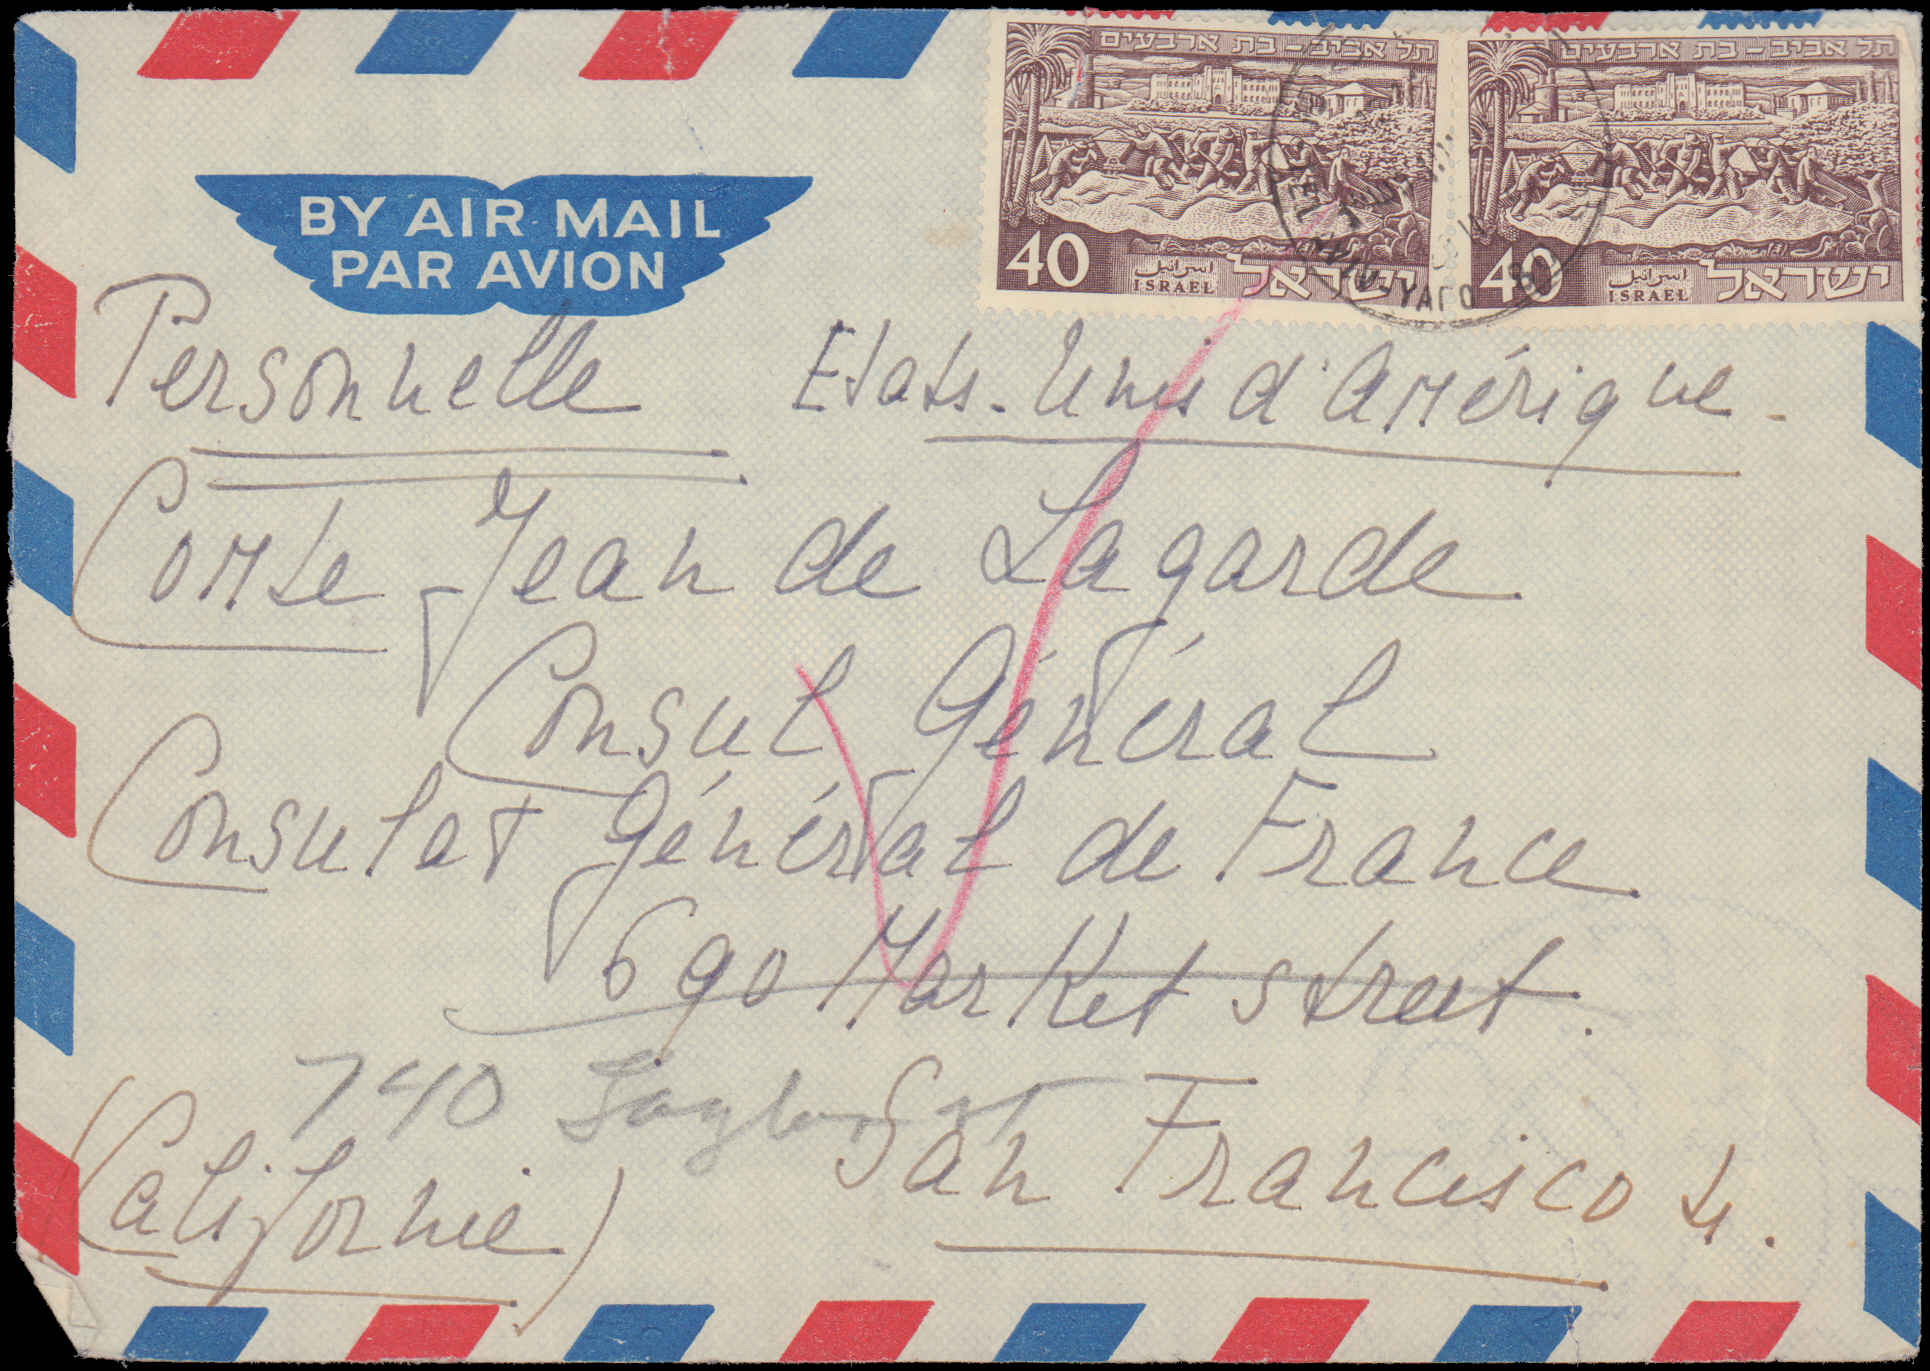 תל אביב - בת ארבעים
תל אביב - בת ארבעים
BY AIR MAIL
PAR AVION
40 اسرائيل ISRAEL ישראל
40 اسرائيل ISRAEL ישראל
YAFO
Personnelle Etats-Unis d'Amérique-
Comte Jean de Lagarde
Consul Général
Consulat Général de France
690 Market street.
740 Taylor st
San Francisco 4.
(Californie)